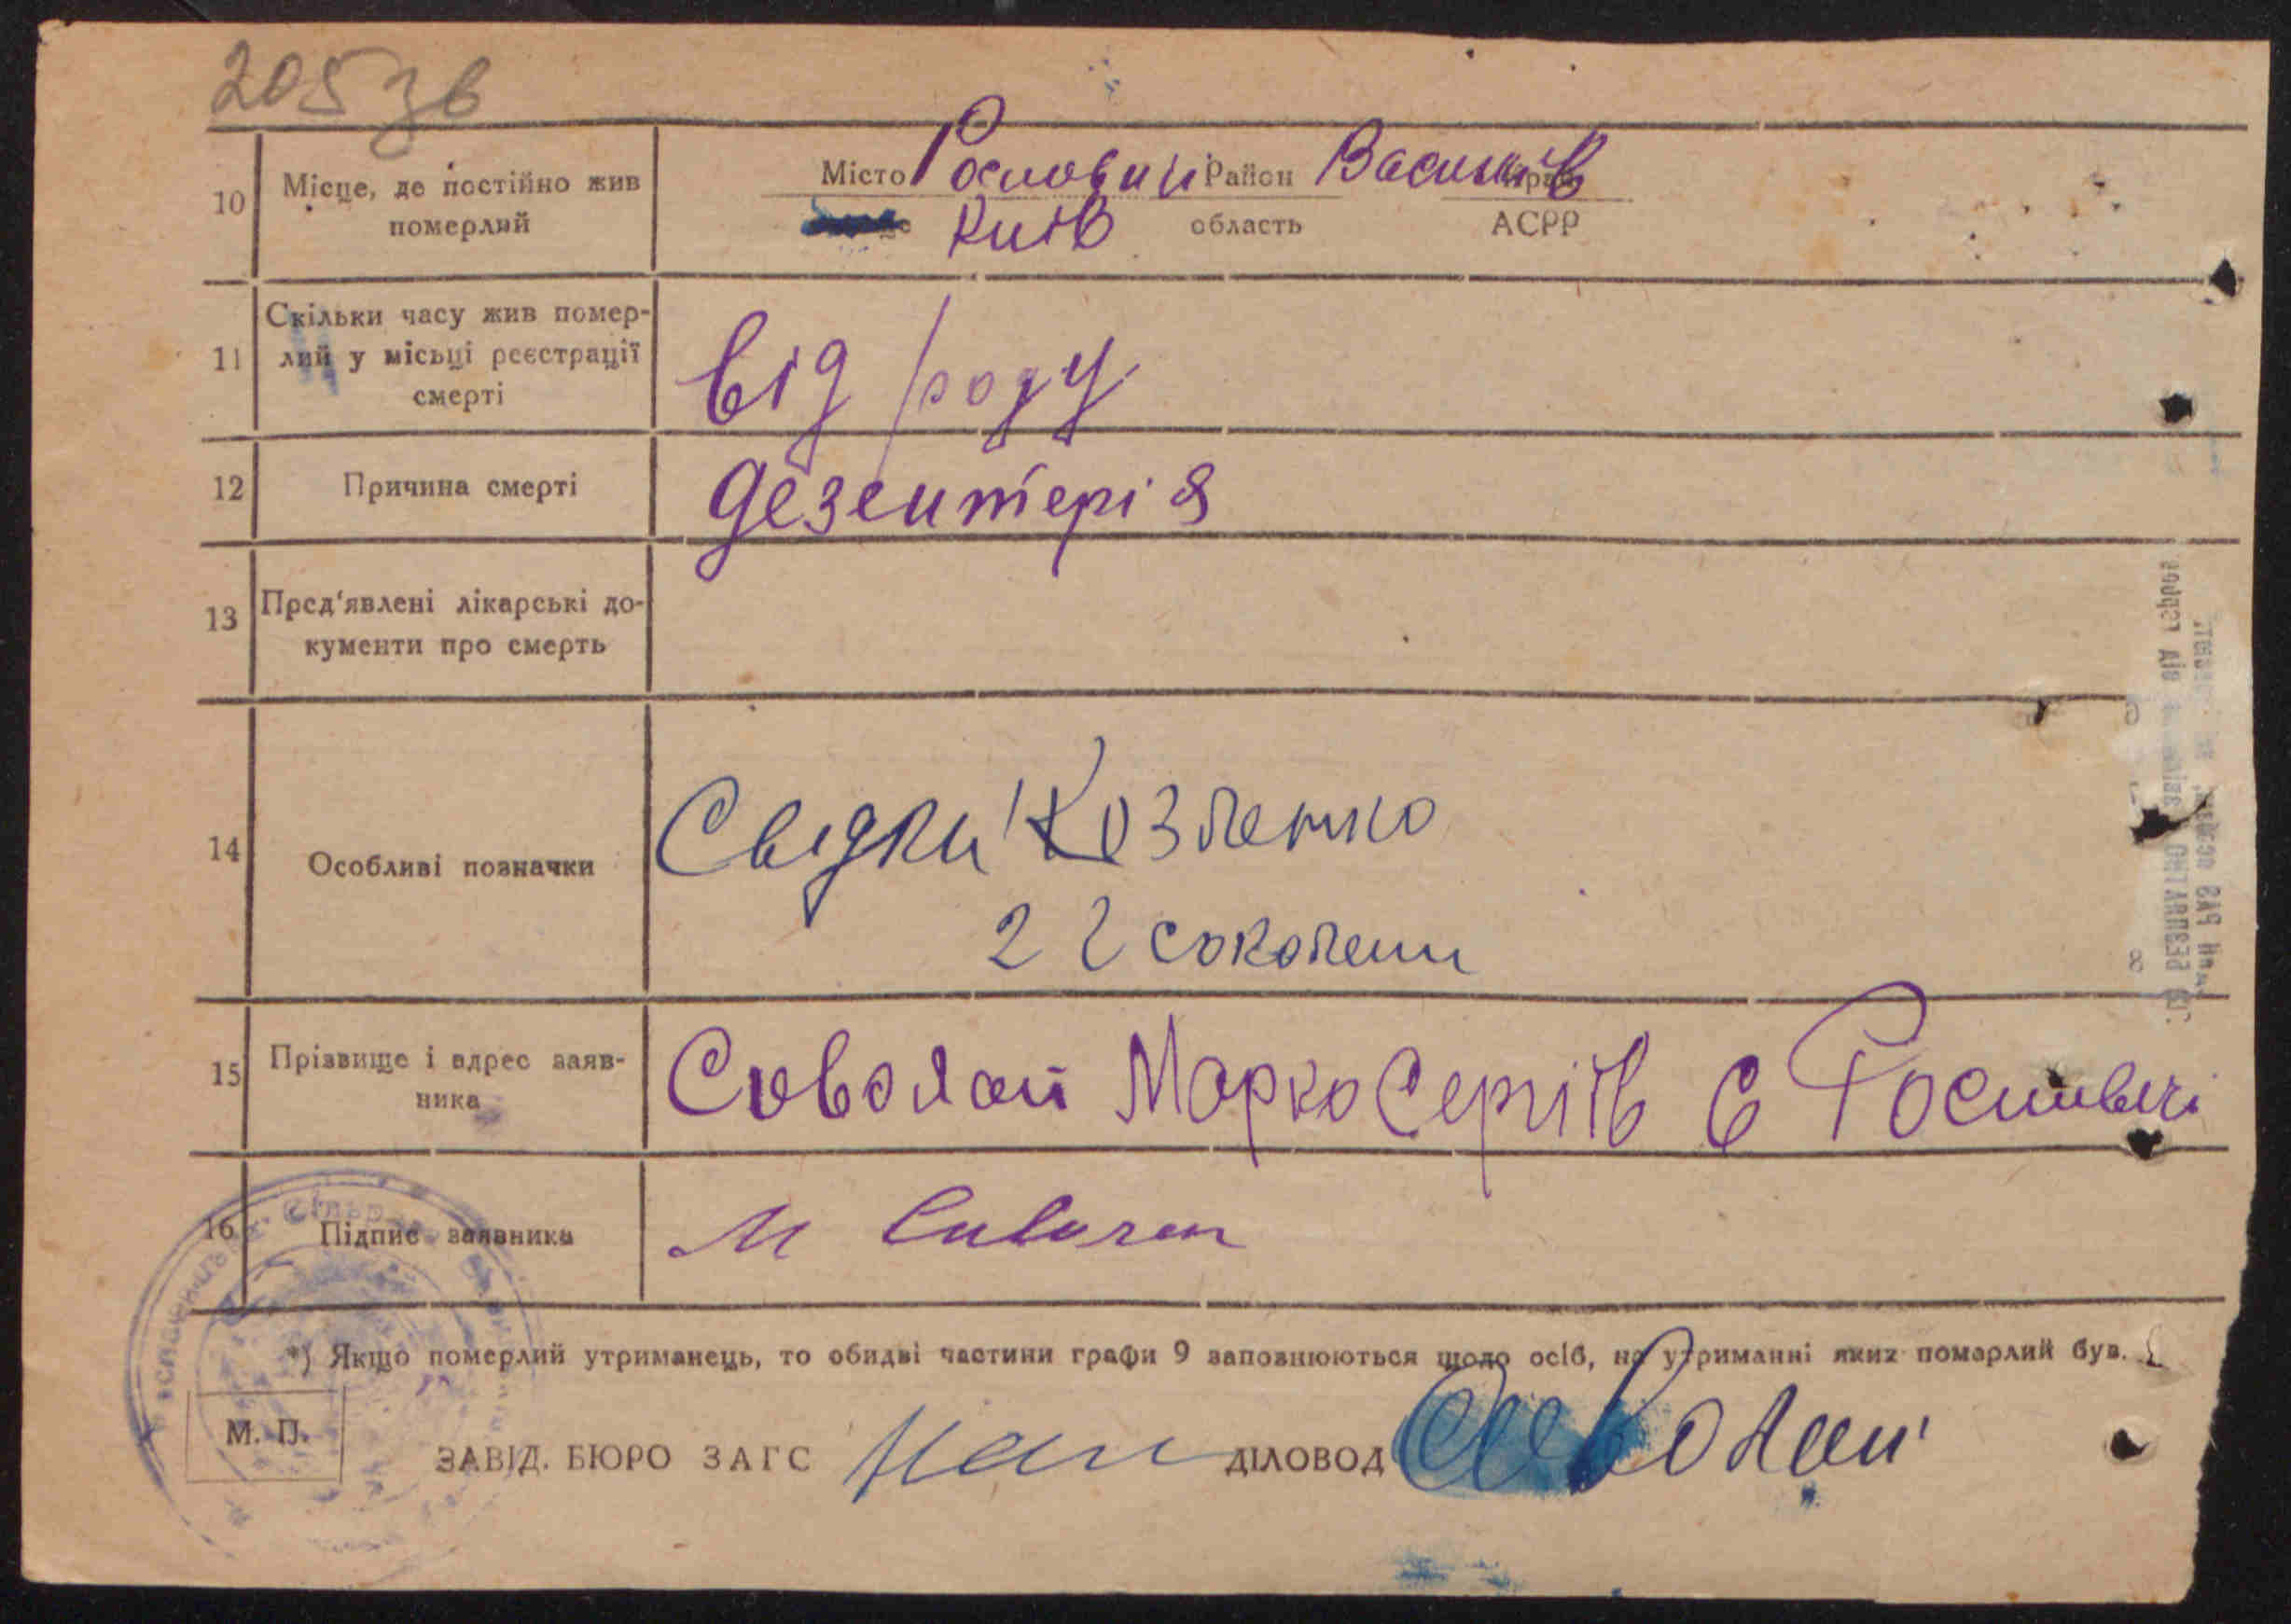 205 зв
10 Місце, де постійно жив Місто Рословичі Район Васильків край
померлий Київ область АСРР
Скільки часу жив помер-
11 лий у місьці реєстрації від роду
смерті
12 Причина смерті дезентерія
13 Пред'явлені лікарські до-
кументи про смерть
14 Особливі позначки Свідки Козленко
2 соколени
15 Прізвище і адрес заяв- Соволай Марко Сергіїв С Рославичі
ника
16 Підпис заявника М
*) Якщо померлий утриманець, то обидві частини графи 9 заповнюються щодо осіб, на утриманні яких померлий був.
М. П.
ЗАВІД. БЮРО ЗАГС ДІЛОВОД